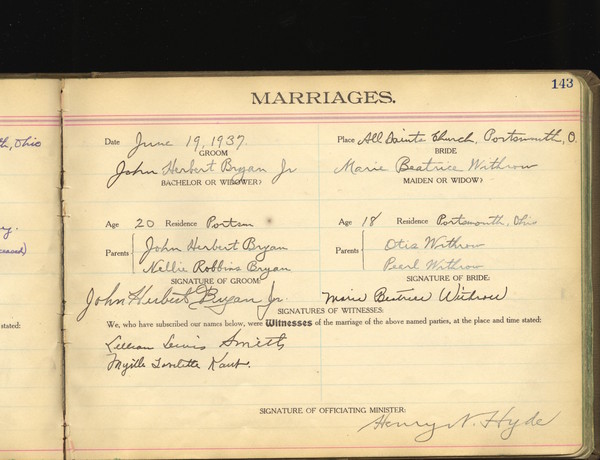 143
MARRIAGES.
th, Ohio
Date June 19, 1937. Place All Saints Church, Portsmouth, O.
GROOM BRIDE
John Herbert Bryan Jr Marie Beatrice Withrow
BACHELOR OR WIDOWER? MAIDEN OR WIDOW?
Age 20 Residence Portsm Age 18 Residence Portsmouth, Ohio
Parents John Herbert Bryan Parents Otis Withrow
Nellie Robbins Bryan Pearl Withrow
SIGNATURE OF GROOM: SIGNATURE OF BRIDE:
John Herbert Bryan Jr. Marie Beatrice Withrow
SIGNATURES OF WITNESSES:
stated: We, who have subscribed our names below, were Witnesses of the marriage of the above named parties, at the place and time stated:
Lillian Lewis Smith
Myrtle Kaut.
SIGNATURE OF OFFICIATING MINISTER:
Henry N. Hyde